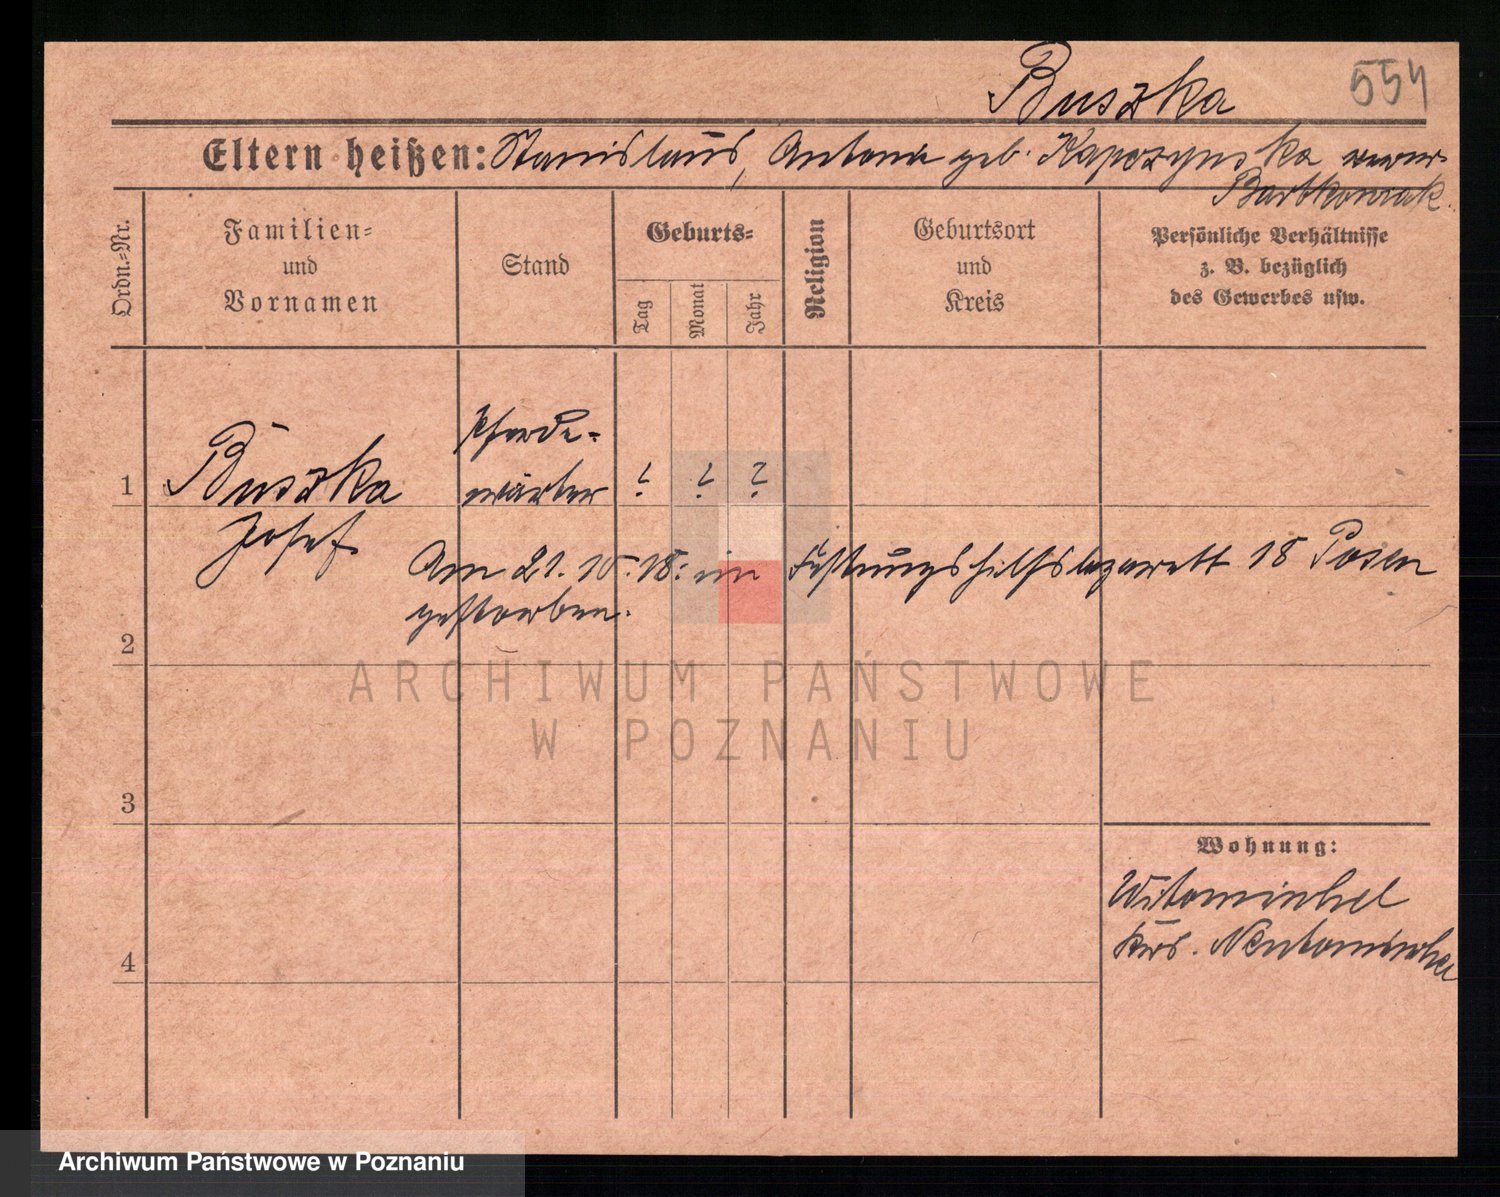 Buszka
554
Eltern heißen: Stanislaus, Antonie geb. Kapczynska verw.
Bartkowiak.
Ordn.-Nr.
Familien-
und
Vornamen
Stand
Geburts-
Tag
Monat
Jahr
Religion
Geburtsort
und
Kreis
Persönliche Verhältnisse
z. B. bezüglich
des Gewerbes usw.
1
Buszka
Josef
Pferde-
wärter
? ? ?
Am 21. 10. 18. im Festungshilfslazarett 18 Posen
gestorben.
2
3
4
Wohnung:
Witomischel
Krs. Neutomischel
ARCHIWUM PAŃSTWOWE
W POZNANIU
Archiwum Państwowe w Poznaniu